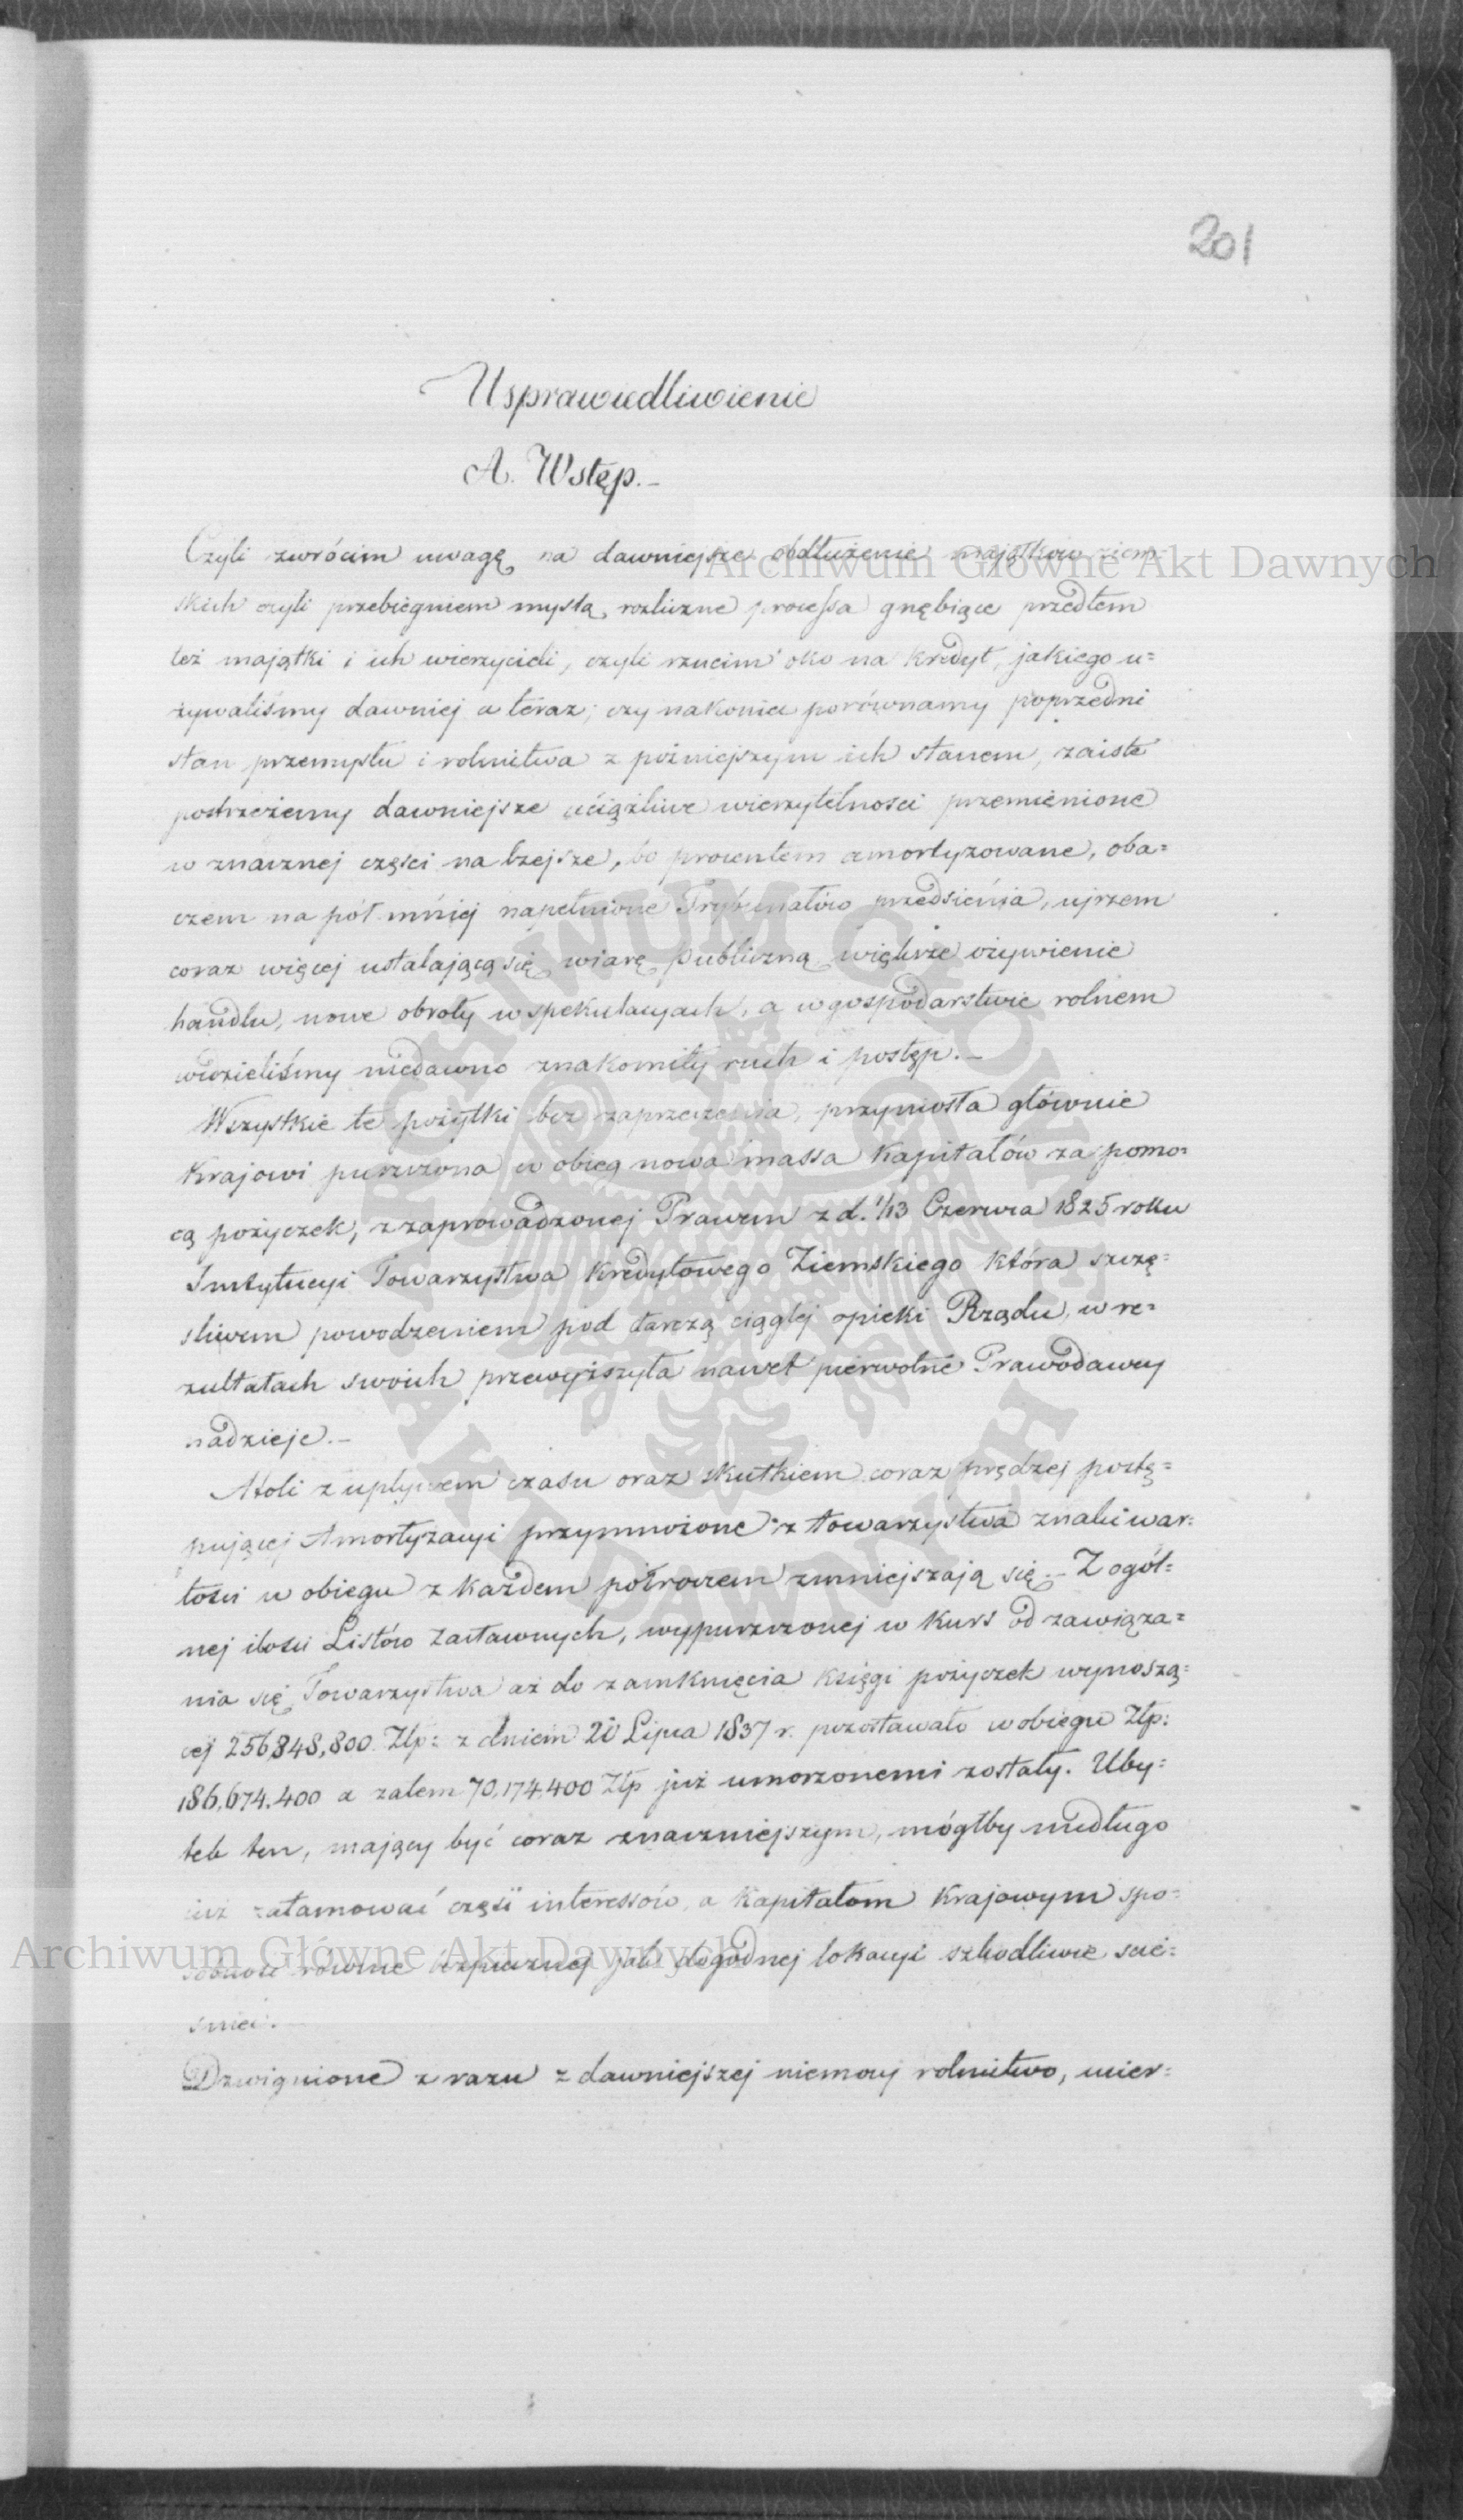 201
Usprawiedliwienie
A. Wstęp.–
Czyli zwrócim uwagę na dawniejsze obdłużenie majątków ziem
skich czyli przebiegniem myslą rozliczne processa gnębiące przedtem
też majątki i ich wierzycieli, czyli rzucim oko na kredyt, jakiego u=
żywaliśmy dawniej a teraz; czy nakoniec porównamy poprzedni
stan przemysłu i rolnictwa z późniejszym ich stanem, zaiste
postrzeżemy dawniejsze uciążliwe wierzytelności przemienione
w znacznej części na lżejsze, bo procentem amortyzowane, oba=
czem na pół mniej napełnione Trybunałów przedsienia, ujrzem
coraz więcej ustalającą się wiarę publiczną, większe ożywienie
handlu, nowe obroty w spekulacyach, a w gospodarstwie rolnem
widzieliśmy niedawno znakomity ruch i postęp.–
Wszystkie te pożytki bez zaprzeczenia, przyniosła głównie
Krajowi puszczona w obieg nowa massa kapitałów za pomo=
cą pożyczek, z zaprowadzonej Prawem z d. 1/13 Czerwca 1825 roku
Instytucyi Towarzystwa Kredytowego Ziemskiego która szczę=
śliwem powodzeniem pod tarczą ciągłej opieki Rządu, w re=
zultatach swoich przewyższyła nawet pierwotne Prawodawcy
nadzieje.–
Atoli z upływem czasu oraz skutkiem coraz prędzej postę=
pującej Amortyzacyi przymnożone z towarzystwa znaki war=
tości w obiegu z każdem półroczem zmniejszają się.– Z ogól=
nej ilości Listów Zastawnych, wypuszczonej w kurs od zawiąza=
nia się Towarzystwa aż do zamknięcia księgi pożyczek wynoszą=
cej 256,848,800 Złp: z dniem 20 Lipca 1837 r. pozostawało w obiegu Złp:
186,674,400 a zatem 70,174,400 Złp już umorzonemi zostały. Uby=
tek ten, mający być coraz znaczniejszym, mógłby niedługo
już zatamować część interessów, a Kapitałom Krajowym spo=
sobność równie bezpiecznej jak dogodnej lokacyi szkodliwie ście=
śnić.
Dzwignione z razu z dawniejszej niemocy rolnictwo, wier=
Archiwum Główne Akt Dawnych
Archiwum Główne Akt Dawnych
ARCHIWUM GŁÓWNE
AKT DAWNYCH